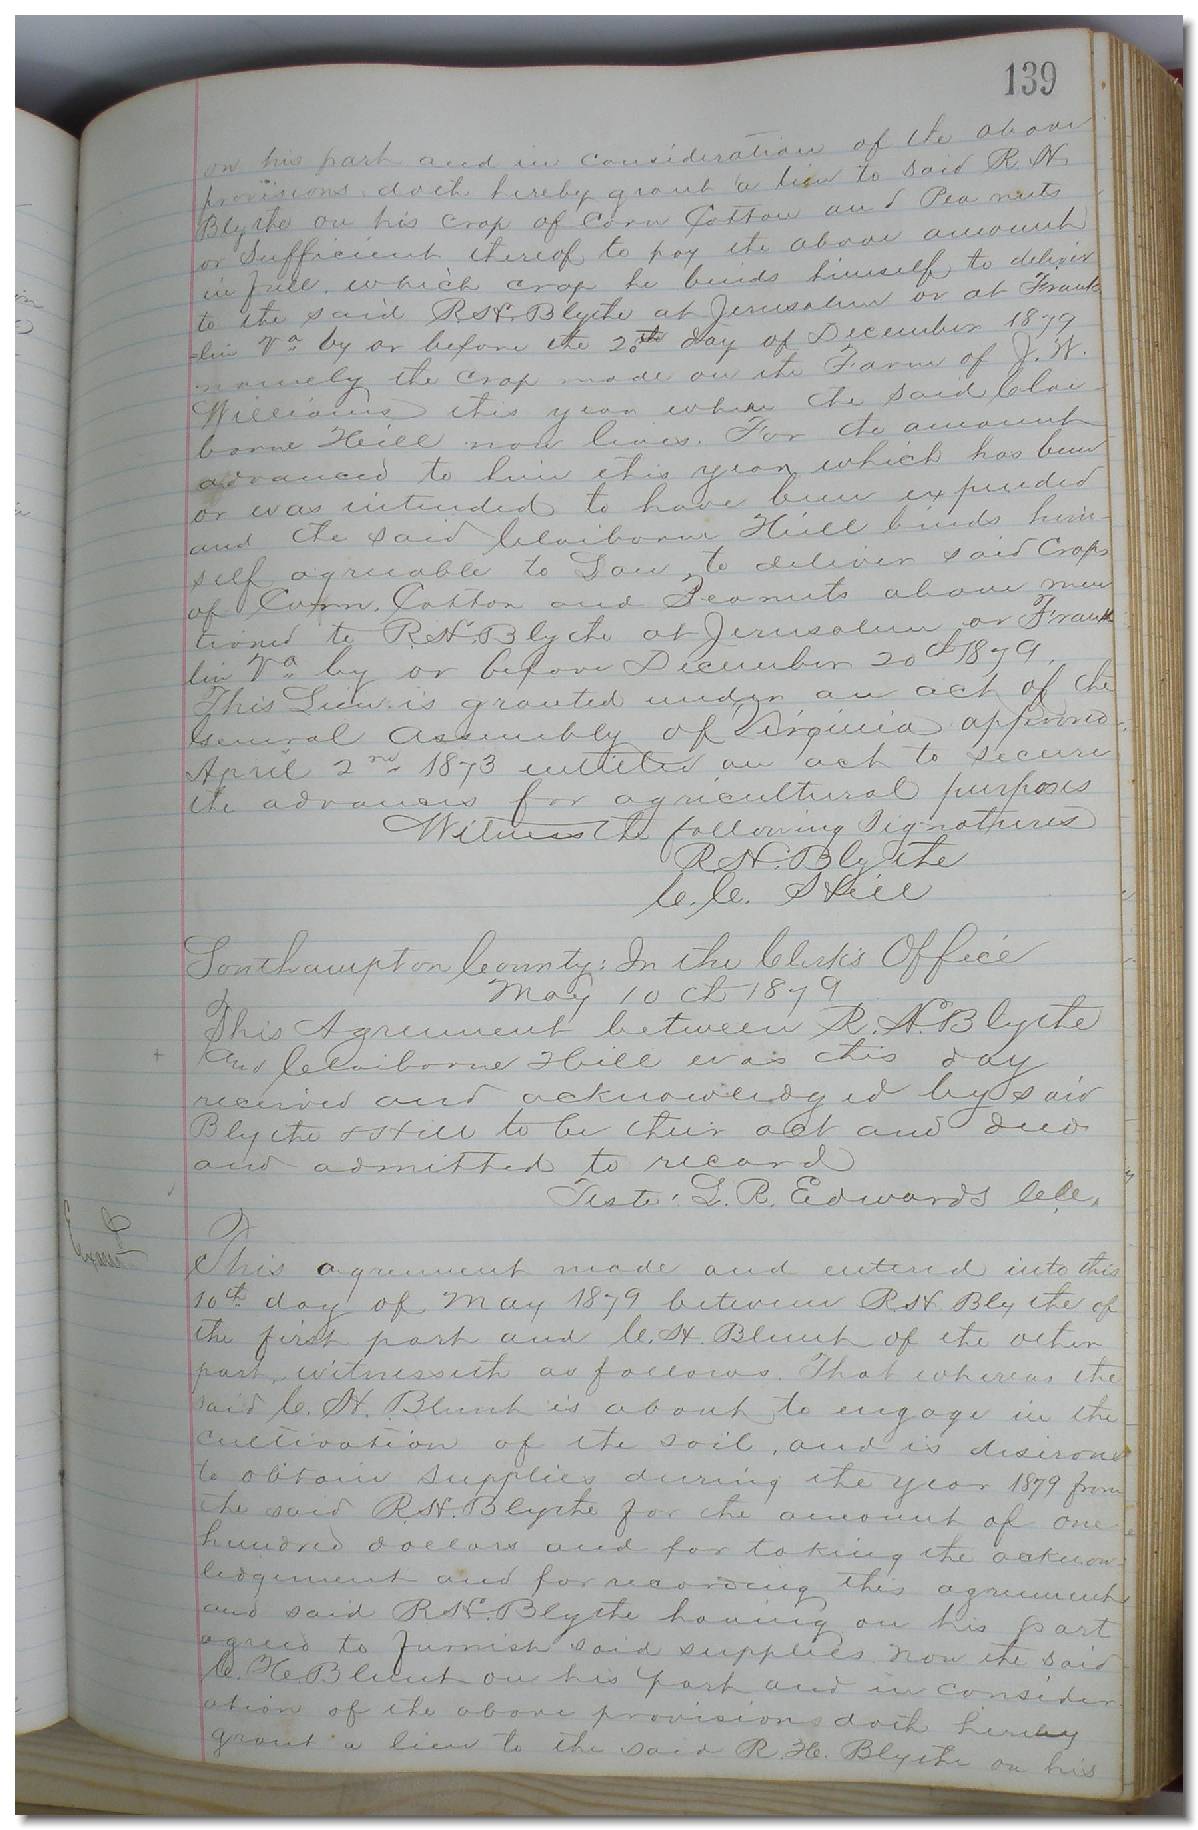 139
on his part and in consideration of the above
provisions doth hereby grant a lien to said R. H.
Blythe on his crop of Corn Cotton and Peanuts
or Sufficient thereof to pay the above amount
in full. which crop he binds himself to deliver
to the said R. H. Blythe at Jerusalem or at Frank
lin Va by or before the 20th day of December 1879
namely the crop made on the Farm of J. W.
Williams this year where the said Clai
borne Hill now lives. For the amount
advanced to him this year which has been
or was intended to have been expended
and the said Claiborne Hill binds him
self agreeable to Law to deliver said Crops
of Corn, Cotton and Peanuts above men
tioned to R. H. Blythe at Jerusalem or Frank
lin Va by or before December 20th 1879.
This Lien is granted under an act of the
General Assembly of Virginia approved
April 2nd 1873 entitled an act to secure
the advances for agricultural purposes
Witness the following Signatures
R. H. Blythe
C. C. Hill
Southampton County: In the Clerk's Office
May 10th 1879
This Agreement between R. H. Blythe
and Claiborne Hill was this day
received and acknowledged by said
Blythe & Hill to be their act and deed
and admitted to record
Teste: L. R. Edwards C.C.
This agreement made and entered into this
10th day of May 1879 between R. H. Blythe of
the first part and C. H. Blunt of the other
part, witnesseth as follows. That whereas the
said C. H. Blunt is about to engage in the
cultivation of the soil, and is desirous
to obtain supplies during the year 1879 from
the said R. H. Blythe for the amount of one
hundred dollars and for taking the acknow
ledgement and for recording this agreement
and said R. H. Blythe having on his part
agreed to furnish said supplies now the said
C. H. Blunt on his part and in consider
ation of the above provisions doth hereby
grant a lien to the said R. H. Blythe on his